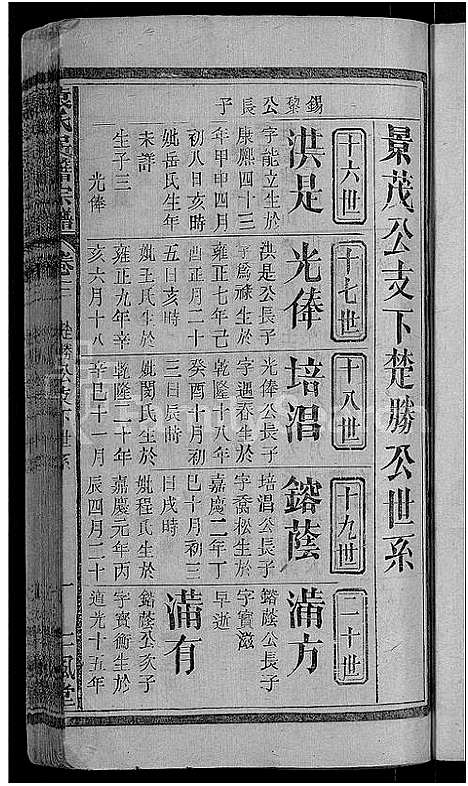 景茂公支下楚勝公世系
十六世
十七世
十八世
十九世
二十世
錫黎公長子
洪是
字能立生於
康熙四十三
年甲申四月
初八日亥時
妣岳氏生年
未譜
生子三
光俸
光俸
洪是公長子
字為祿生於
雍正七年己
酉正月二十
五日亥時
妣王氏生於
雍正九年辛
亥六月十八
培淐
光俸公長子
字遇春生於
乾隆十八年
癸酉十月初
三日辰時
妣閔氏生於
乾隆二十年
辛巳十一月
鎔蔭
培淐公長子
字喬松生於
嘉慶二年丁
巳十月初三
日戌時
妣程氏生於
嘉慶元年丙
辰四月二十
滿方
鎔蔭公長子
字賓
早逝
滿有
鎔蔭公次子
字賓衡生於
道光十五年
氏宗譜
卷三
楚勝公支下世系